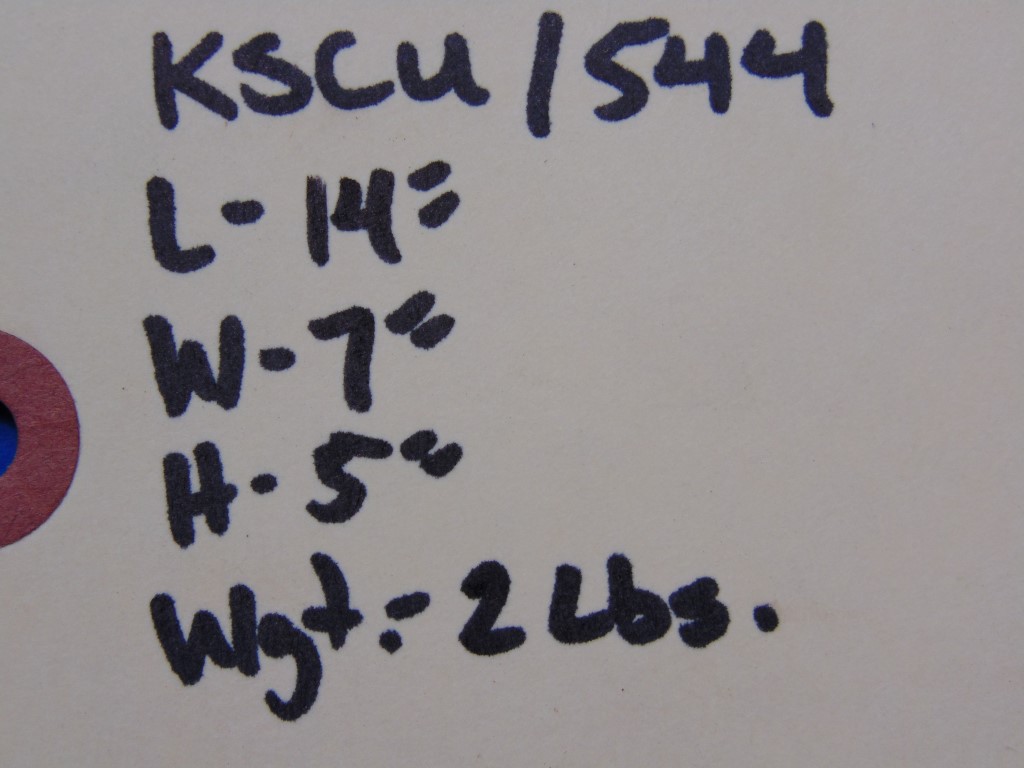 KSCU/544
L- 14"
W- 7"
H- 5"
Wgt.- 2 Lbs.